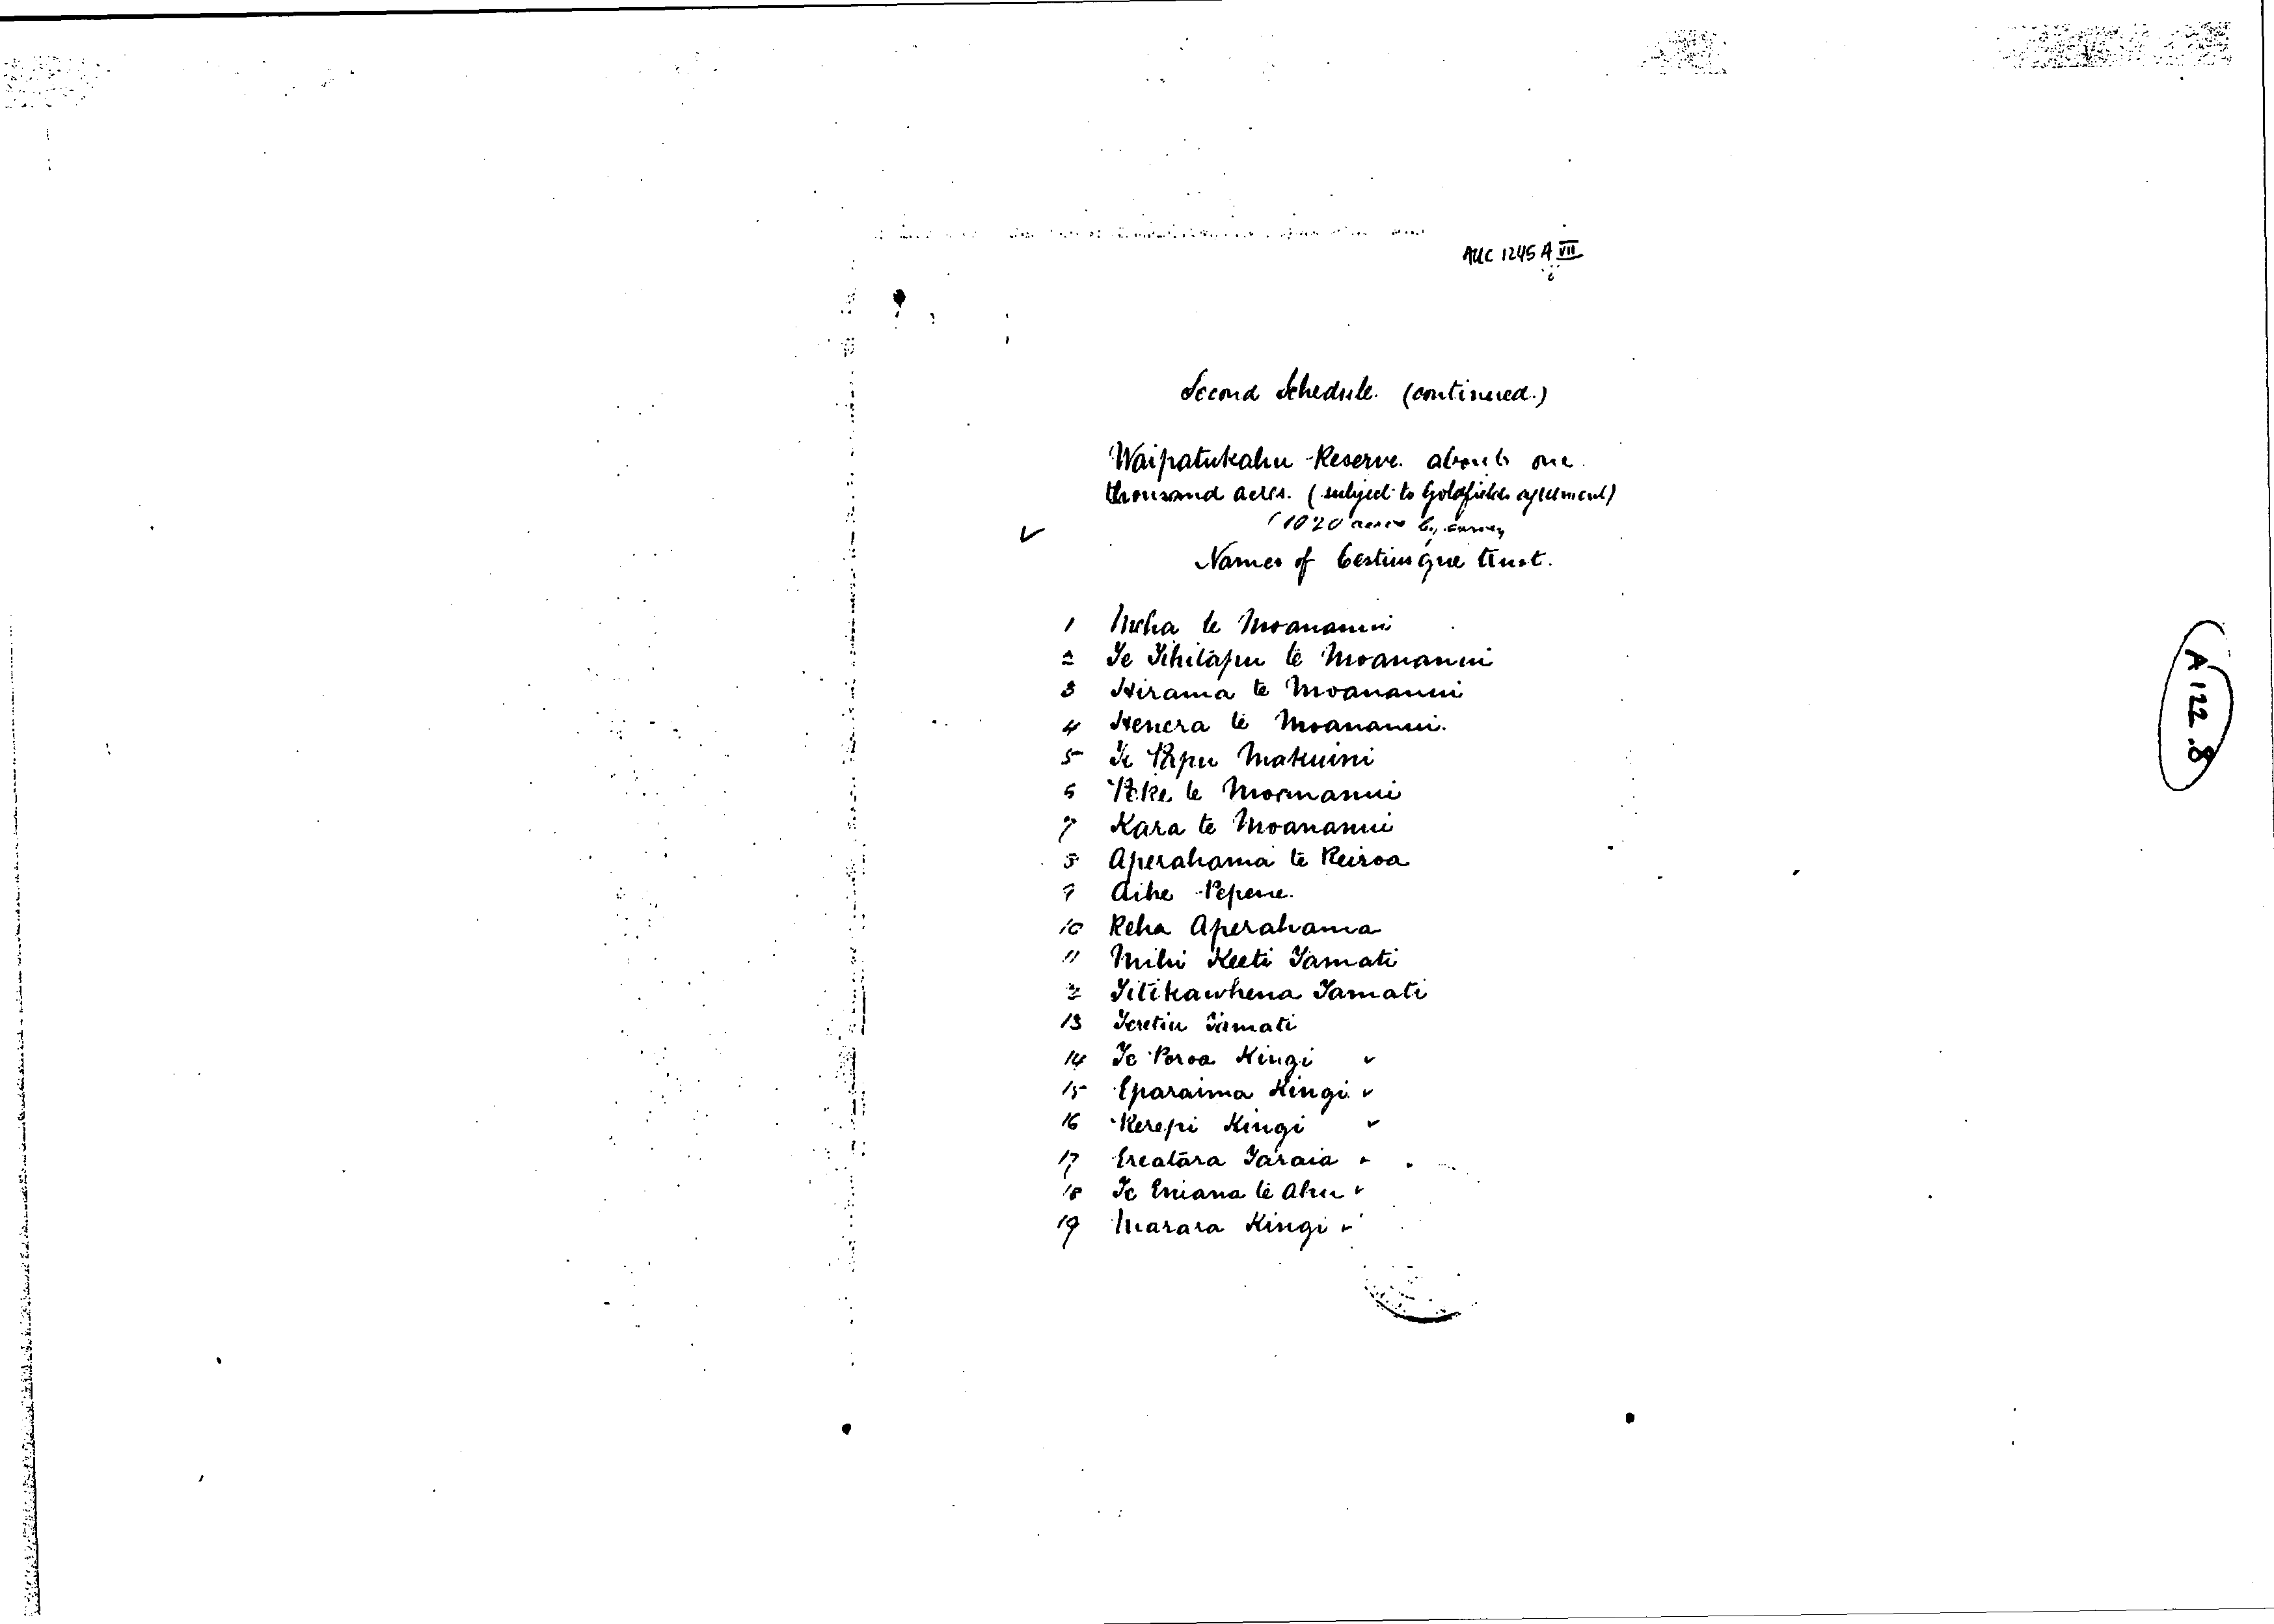 AUC 1245 A VII
i
Second Schedule. (continued.)
Waipatukahu Reserve. about one
thousand acres. (subject to Goldfields agreement)
(1020 acres by survey
Names of Cestuis que trust.
1 Meha te Moananui
2 Te Hihitapu te Moananui
3 Hirama te Moananui
4 Henera te Moananui.
5 Te Papu Makuini
6 te Moananui
7 Kara te Moananui
8 Aperahama te Reiroa
9 Aihe Pepene.
10 Reha Aperahama
11 Mihi Keeti Tamati
12 Titikawhena Tamati
13 Teretiu Tamati
14 Te Poroa Kingi ✓
15 Eparaima Kingi ✓
16 Rerepi Kingi ✓
17 Ereatara Taraia ✓
18 Te Eniana te Ahu ✓
19 Marara Kingi ✓
A 122.8